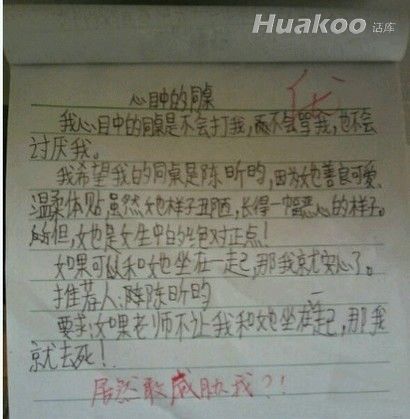 Huakoo 话库
心目中的同桌
优
我心目中的同桌是不会打我,而不会骂我,也不会
讨厌我。
我希望我的同桌是陈昕昀,因为她善良可爱、
温柔体贴,虽然她样子丑陋,长得一幅恶心的样子。
但,她是女生中的绝对正点!
如果可以和她坐在一起,那我就安心了。
推荐人:陈昕昀
要求:如果老师不让我和她坐在一起,那我
就去死!
居然敢威胁我?!